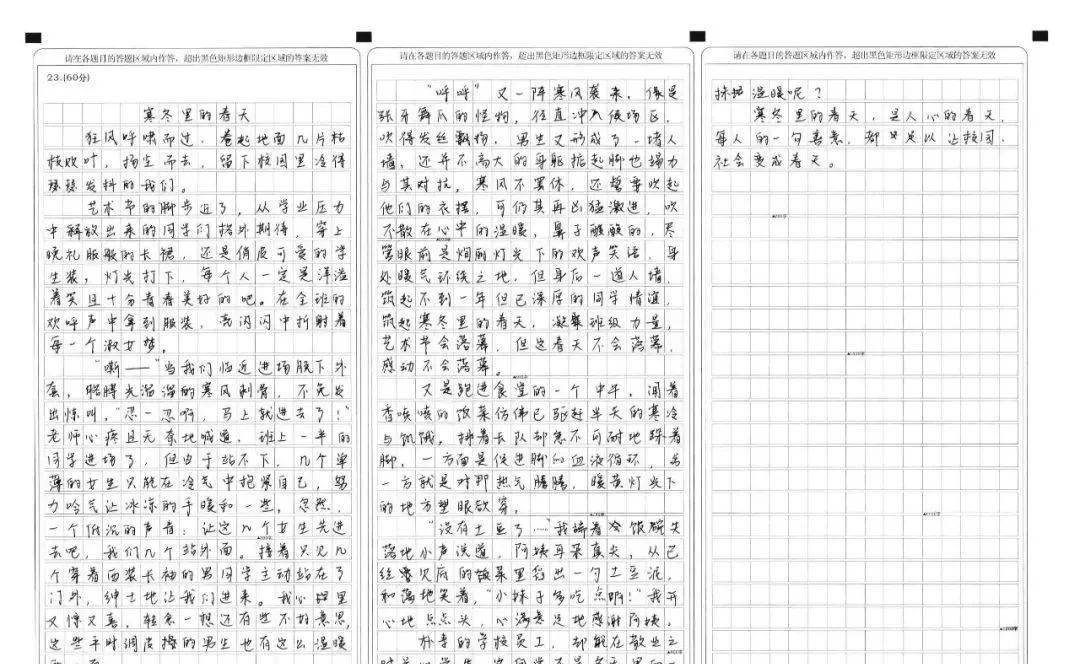 请在各题目的答题区域内作答，超出黑色矩形边框限定区域的答案无效
23.(60分)
寒冬里的春天
狂风呼啸而过，卷起地面几片枯
枝败叶，扬尘而去，留下校园里冷得
瑟瑟发抖的我们。
艺术节的脚步近了，从学业压力
中解放出来的同学们格外期待，穿上
晚礼服般的长裙，还是俏皮可爱的学
生装，灯光打下，每个人一定是洋溢
着笑且十分青春美好的吧。在全班的
欢呼声中拿到服装，亮闪闪中折射着
每一个淑女梦。
“嘶——”当我们临近进场脱下外
套，胳膊光溜溜的寒风刺骨，不免发
出惊叫，“忍一忍啊，马上就进去了！”
老师心疼且无奈地喊道，班上一半的
同学进场了，但由于站不下，几个单
薄的女生只能在冷气中抱紧自己，努
力哈气让冰冻的手暖和一些，忽然，
一个低沉的声音：让这几个女生先进
去吧，我们几个站外面。接着只见几
个穿着西装长袖的男同学主动站在了
门外，绅士地让我们进来。我心里
又惊又喜，转念一想还有些不好意思，
这些平时调皮捣的男生也有这么温暖
请在各题目的答题区域内作答，超出黑色矩形边框限定区域的答案无效
“呼呼”又一阵寒风袭来，像是
张牙舞爪的怪物，径直冲入候场区，
吹得发丝飘扬，男生又形成了一堵人
墙，还并不高大的身躯掂起脚也竭力
与其对抗，寒风不罢休，还誓要吹起
他们的衣摆，可任其再凶猛激进，吹
不散在心中的温暖，鼻子酸酸的，尽
管眼前是绚丽灯光下的欢声笑语，身
处暖气环绕之地，但身后一道人墙，
筑起不到一年但已深厚的同学情谊，
筑起寒冬里的春天，凝聚班级力量，
艺术节会落幕，但这春天不会落幕，
感动不会落幕。
又是跑进食堂的一个中午，闻着
香喷喷的饭菜仿佛已驱赶半天的寒冷
与饥饿，排着长队却急不可耐地跺着
脚，一方面是促进脚的血液循环，另
一方就是对那热气腾腾，暖黄灯光下
的地方望眼欲穿。
“没有土豆了……”我端着冷饭碗失
落地小声说道，阿姨耳朵真尖，从已
经见底的饭菜里舀出一勺土豆泥，
和蔼地笑着，“小妹子多吃点啊！”我开
心地点点头，心满意足地感谢阿姨。
朴素的学校员工，却能在散业之
请在各题目的答题区域内作答，超出黑色矩形边框限定区域的答案无效
温暖呢？
寒冬里的春天，是人心的春天，
每人的一句善意，都足以让校园，
社会变成春天。